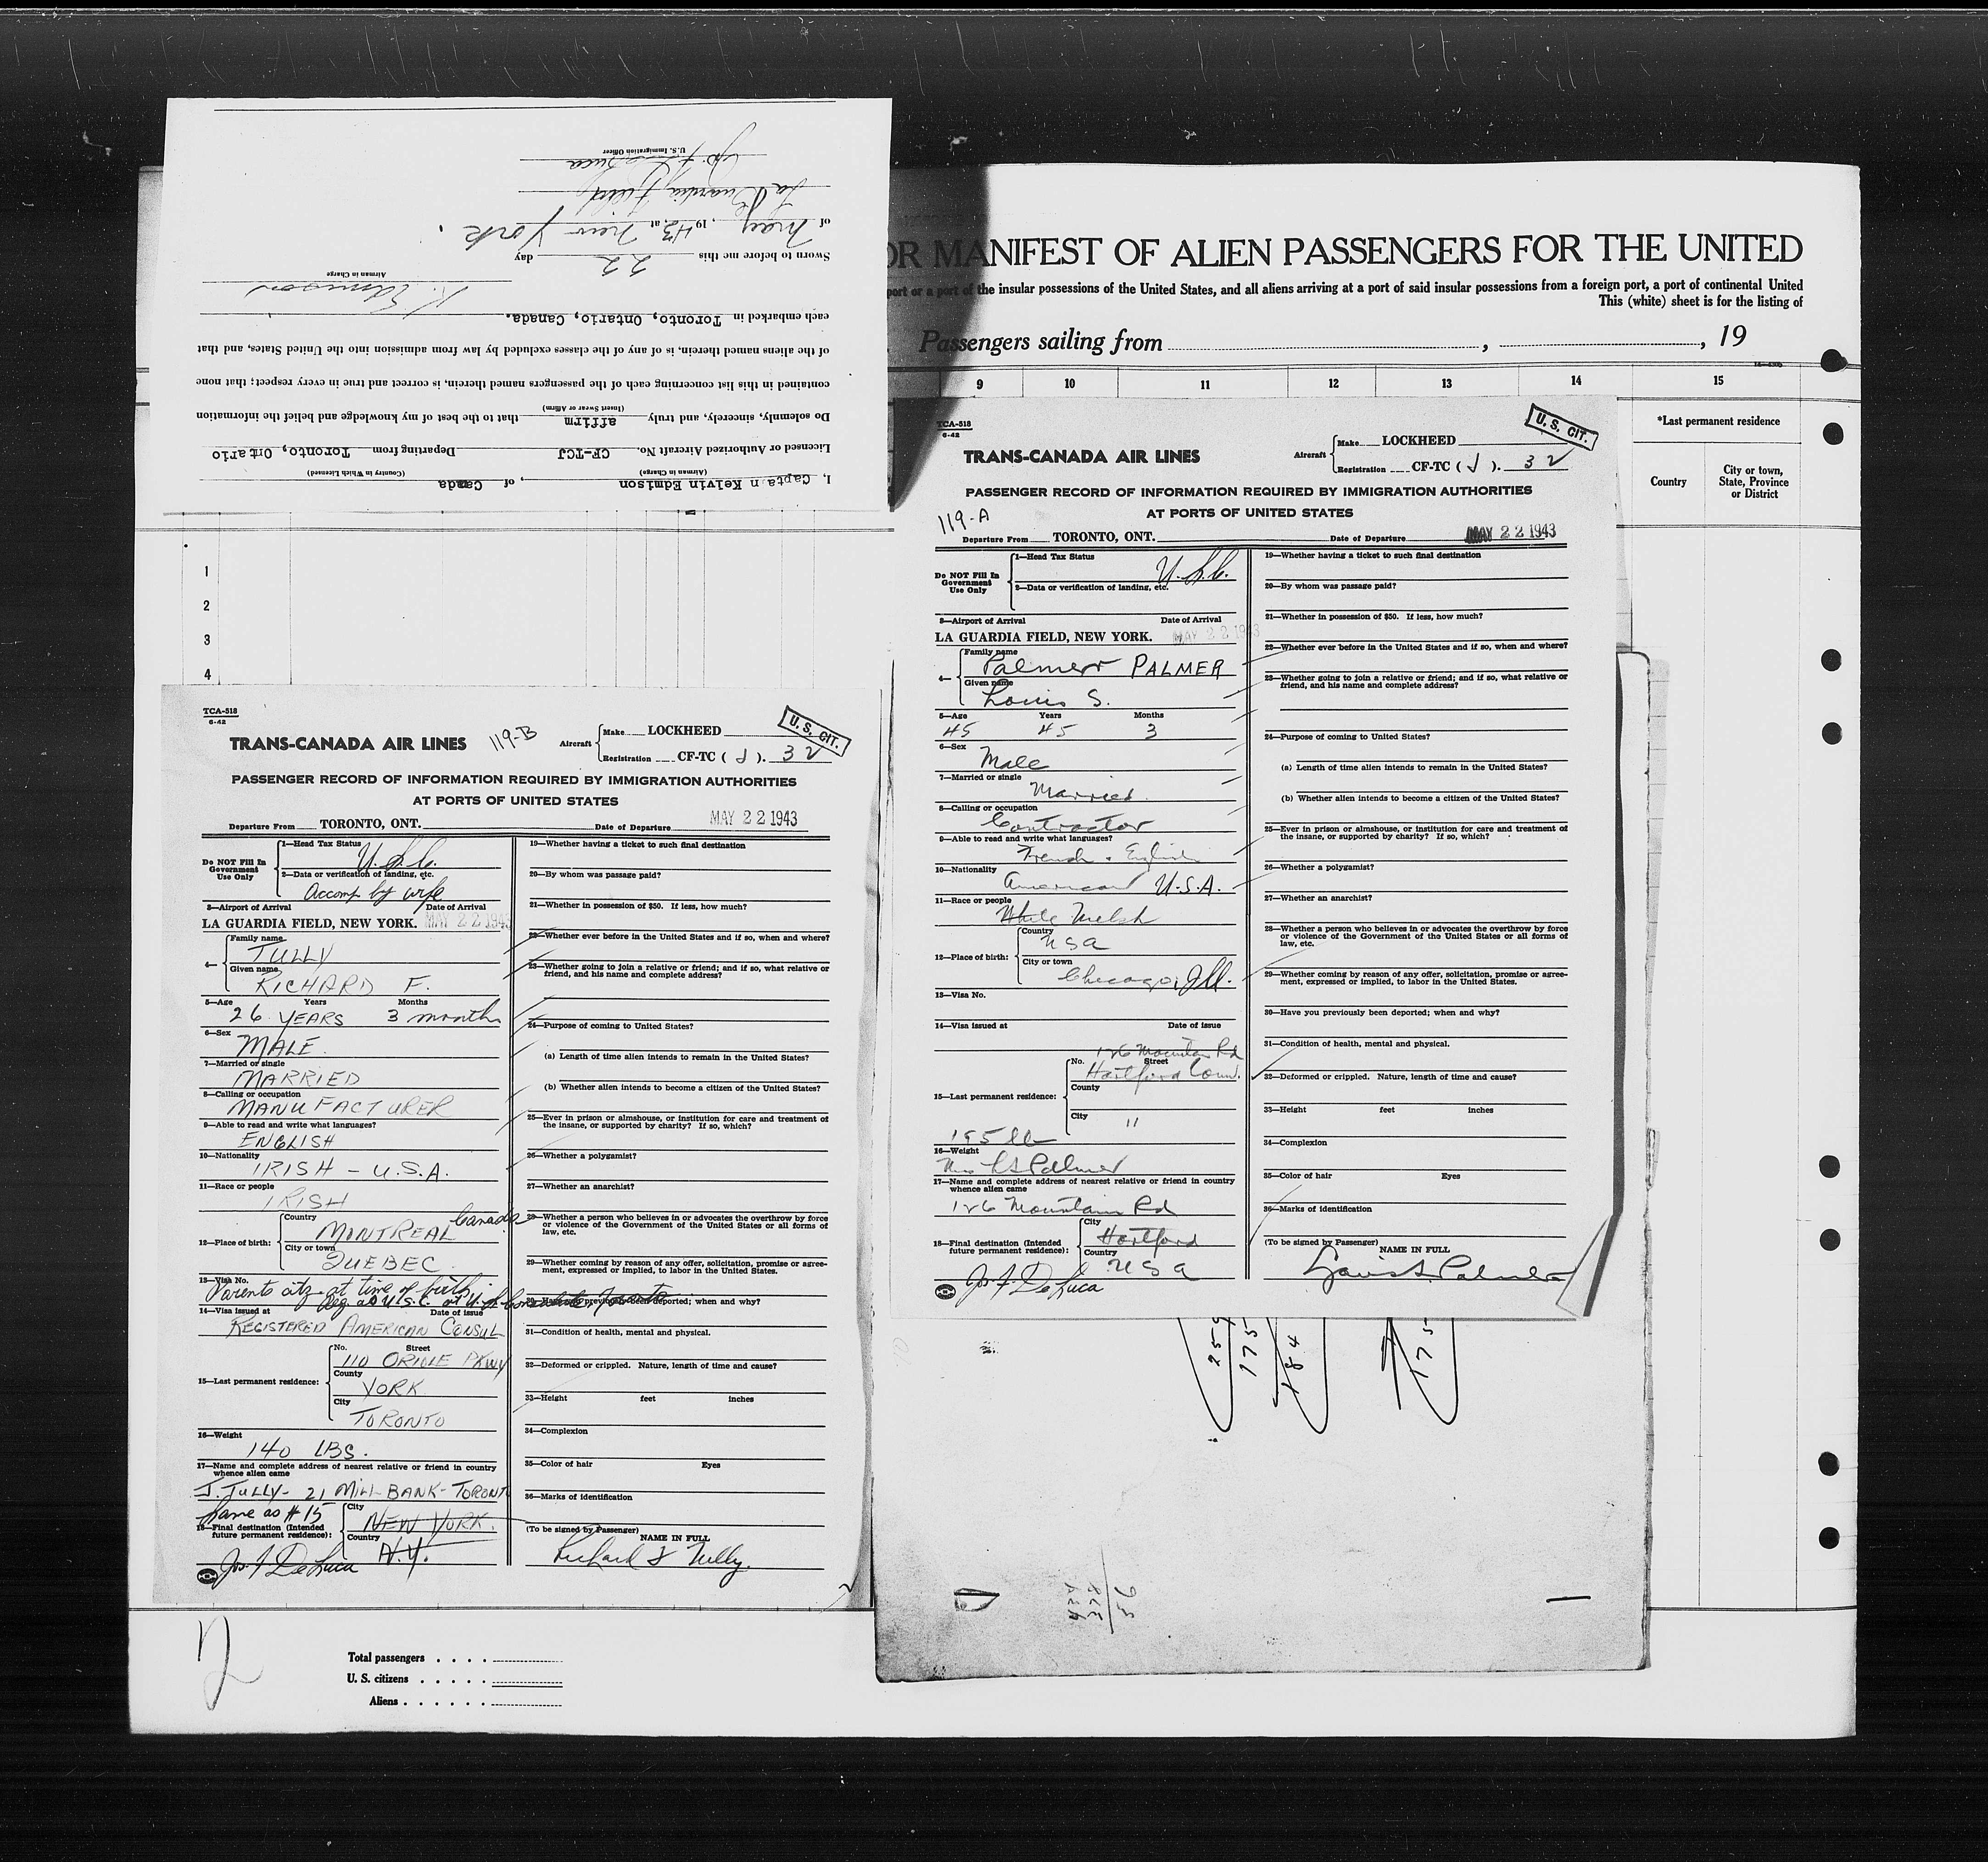 I, Capta n Kelvin Edmison, of Canada
(Airman in Charge) (Country in Which Licensed)
Licensed or Authorized Aircraft No. CF-TCJ Departing from Toronto, Ontario
Do solemnly, sincerely, and truly affirm that to the best of my knowledge and belief the information
(Insert Swear or Affirm)
contained in this list concerning each of the passengers named therein, is correct and true in every respect; that none
of the aliens named therein, is of any of the classes excluded by law from admission into the United States, and that
each embarked in Toronto, Ontario, Canada.
K. Edmison
Airman in Charge
Sworn to before me this 22 day
of May, 1943, at New York.
La Guardia Field
U.S. Immigration Officer
OR MANIFEST OF ALIEN PASSENGERS FOR THE UNITED
port or a port of the insular possessions of the United States, and all aliens arriving at a port of said insular possessions from a foreign port, a port of continental United
This (white) sheet is for the listing of
Passengers sailing from , , 19
9 10 11 12 13 14 15
*Last permanent residence
Country City or town, State, Province or District
1
2
3
4
TCA-518
6-42
TRANS-CANADA AIR LINES 119-B
Aircraft Make LOCKHEED
Registration CF-TC ( J ). 32
U. S. CIT.
PASSENGER RECORD OF INFORMATION REQUIRED BY IMMIGRATION AUTHORITIES
AT PORTS OF UNITED STATES
Departure From TORONTO, ONT. Date of Departure MAY 22 1943
Do NOT Fill In Government Use Only
1—Head Tax Status U.S.C.
2—Data or verification of landing, etc.
Accomp by wife
3—Airport of Arrival Date of Arrival
LA GUARDIA FIELD, NEW YORK. MAY 22 1943
4— Family name
TULLY
Given name
RICHARD F.
5—Age Years Months
26 YEARS 3 months
6—Sex
MALE.
7—Married or single
MARRIED
8—Calling or occupation
MANUFACTURER
9—Able to read and write what languages?
ENGLISH
10—Nationality
IRISH - U.S.A.
11—Race or people
IRISH
12—Place of birth: Country
MONTREAL Canada
City or town
QUEBEC.
13—Visa No.
Parents citz. at time of birth.
Reg as U.S.C. at U.S. Consulate Toronto
14—Visa issued at Date of issue
REGISTERED AMERICAN CONSUL
15—Last permanent residence: No. Street
110 ORIOLE PKWY
County
YORK
City
TORONTO
16—Weight
140 LBS.
17—Name and complete address of nearest relative or friend in country whence alien came
J. TULLY - 21 MILLBANK - TORONTO
Same as #15
18—Final destination (Intended future permanent residence): City
NEW YORK.
Country
N.Y.
Jos. F. DeLuca
19—Whether having a ticket to such final destination
20—By whom was passage paid?
21—Whether in possession of $50. If less, how much?
22—Whether ever before in the United States and if so, when and where?
23—Whether going to join a relative or friend; and if so, what relative or friend, and his name and complete address?
24—Purpose of coming to United States?
(a) Length of time alien intends to remain in the United States?
(b) Whether alien intends to become a citizen of the United States?
25—Ever in prison or almshouse, or institution for care and treatment of the insane, or supported by charity? If so, which?
26—Whether a polygamist?
27—Whether an anarchist?
28—Whether a person who believes in or advocates the overthrow by force or violence of the Government of the United States or all forms of law, etc.
29—Whether coming by reason of any offer, solicitation, promise or agreement, expressed or implied, to labor in the United States.
30—Have you previously been deported; when and why?
31—Condition of health, mental and physical.
32—Deformed or crippled. Nature, length of time and cause?
33—Height feet inches
34—Complexion
35—Color of hair Eyes
36—Marks of identification
(To be signed by Passenger) NAME IN FULL
Richard F Tully.
2
Total passengers
U. S. citizens
Aliens
TCA-518
6-42
TRANS-CANADA AIR LINES
Aircraft Make LOCKHEED
Registration CF-TC ( J ). 32
U. S. CIT.
PASSENGER RECORD OF INFORMATION REQUIRED BY IMMIGRATION AUTHORITIES
AT PORTS OF UNITED STATES
119-A
Departure From TORONTO, ONT. Date of Departure MAY 22 1943
Do NOT Fill In Government Use Only
1—Head Tax Status U.S.C.
2—Data or verification of landing, etc.
3—Airport of Arrival Date of Arrival
LA GUARDIA FIELD, NEW YORK. MAY 22 1943
4— Family name
Palmer PALMER
Given name
Louis S.
5—Age Years Months
45 45 3
6—Sex
Male
7—Married or single
Married
8—Calling or occupation
Contractor
9—Able to read and write what languages?
French & English
10—Nationality
American U.S.A.
11—Race or people
White Welsh
12—Place of birth: Country
USA
City or town
Chicago, Ill.
13—Visa No.
14—Visa issued at Date of issue
126 Mountain Rd
15—Last permanent residence: No. Street
Hartford Conn.
County
City
"
195 lb
16—Weight
Mrs LS Palmer
17—Name and complete address of nearest relative or friend in country whence alien came
126 Mountain Rd
18—Final destination (Intended future permanent residence): City
Hartford
Country
USA
Jos. F. DeLuca
19—Whether having a ticket to such final destination
20—By whom was passage paid?
21—Whether in possession of $50. If less, how much?
22—Whether ever before in the United States and if so, when and where?
23—Whether going to join a relative or friend; and if so, what relative or friend, and his name and complete address?
24—Purpose of coming to United States?
(a) Length of time alien intends to remain in the United States?
(b) Whether alien intends to become a citizen of the United States?
25—Ever in prison or almshouse, or institution for care and treatment of the insane, or supported by charity? If so, which?
26—Whether a polygamist?
27—Whether an anarchist?
28—Whether a person who believes in or advocates the overthrow by force or violence of the Government of the United States or all forms of law, etc.
29—Whether coming by reason of any offer, solicitation, promise or agreement, expressed or implied, to labor in the United States.
30—Have you previously been deported; when and why?
31—Condition of health, mental and physical.
32—Deformed or crippled. Nature, length of time and cause?
33—Height feet inches
34—Complexion
35—Color of hair Eyes
36—Marks of identification
(To be signed by Passenger) NAME IN FULL
Louis S. Palmer
259
175
184
175